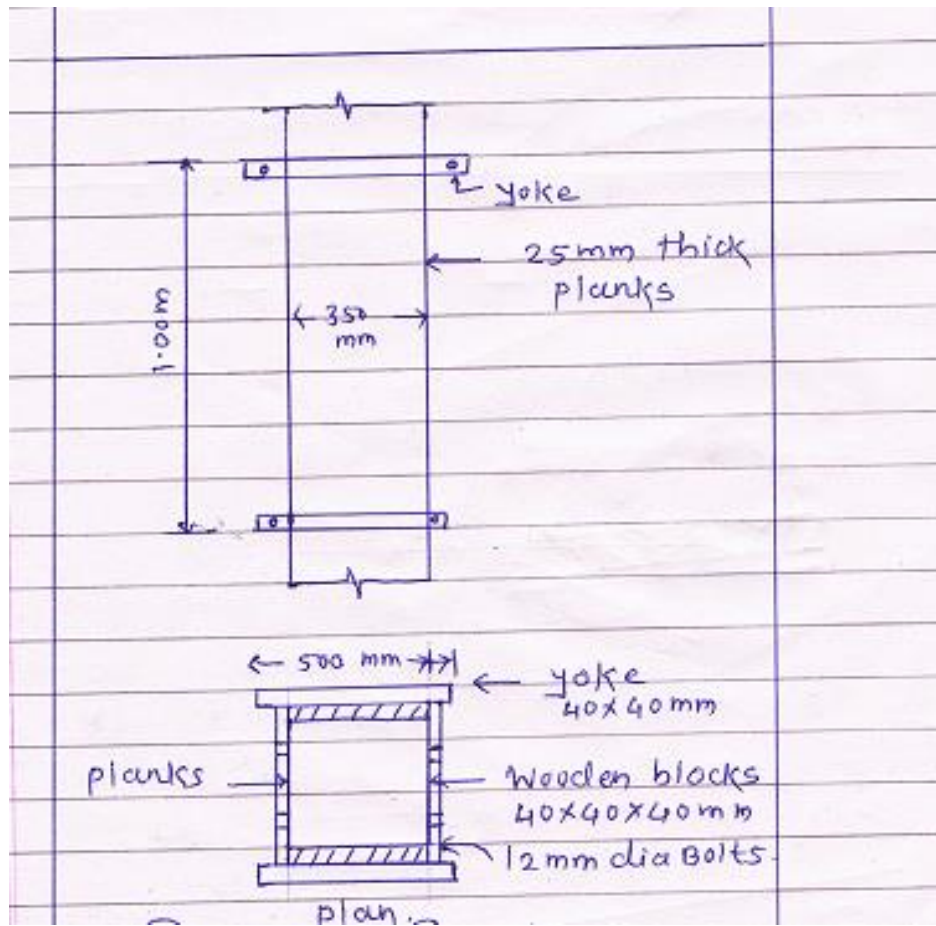 yoke
25mm thick
planks
1.00m
350
mm
500 mm
yoke
40×40mm
planks
Wooden blocks
40×40×40mm
12mm dia Bolts
plan.